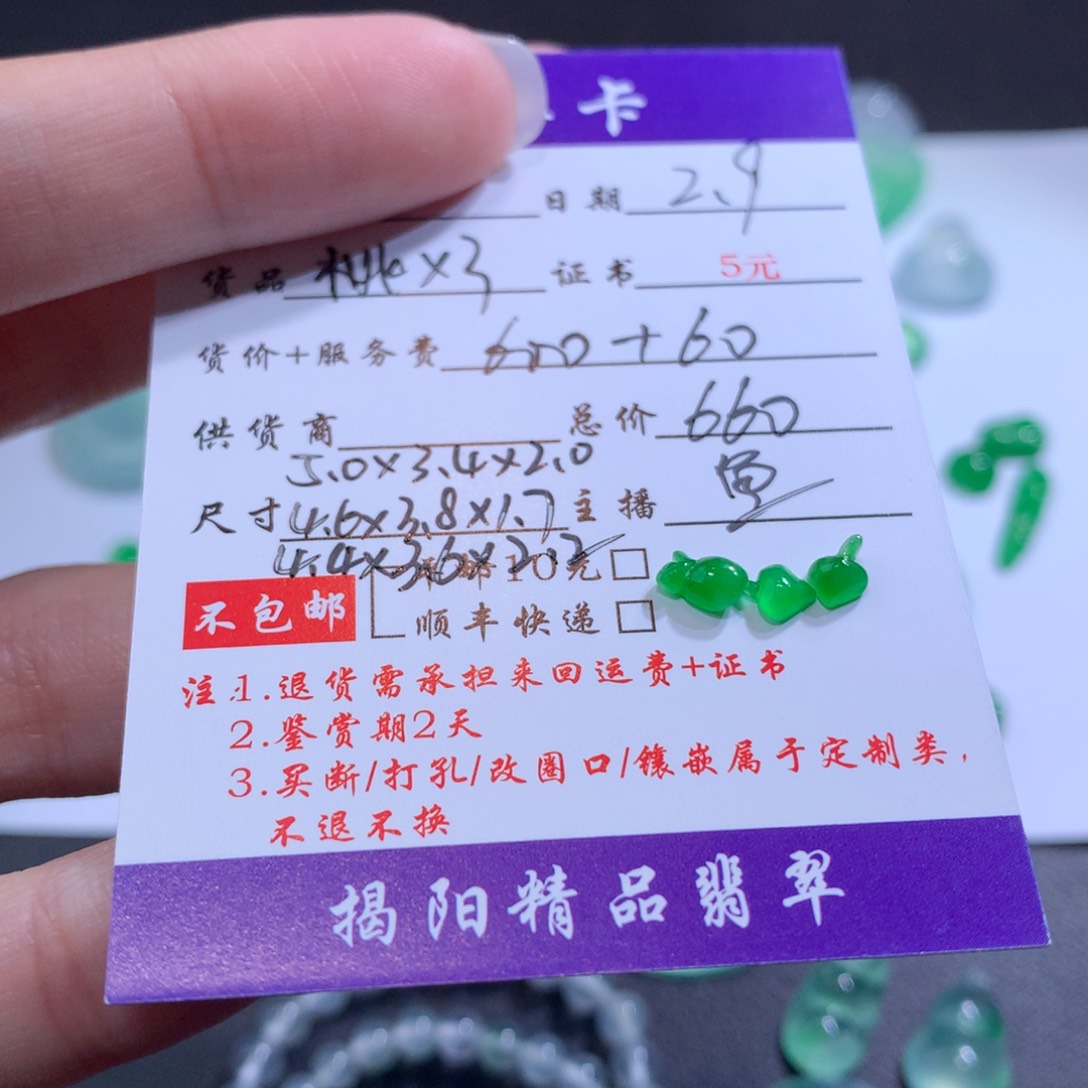 卡
日期 2.9
货品 桃×3 证书 5元
货价+服务费 600+60
供货商 总价 660
5.0×3.4×2.0
尺寸 4.6×3.8×1.7 主播 鱼
4.4×3.6×2.2 10元
不包邮
顺丰快递
注:1.退货需承担来回运费+证书
2.鉴赏期2天
3.买断/打孔/改圈口/镶嵌属于定制类,
不退不换
揭阳精品翡翠